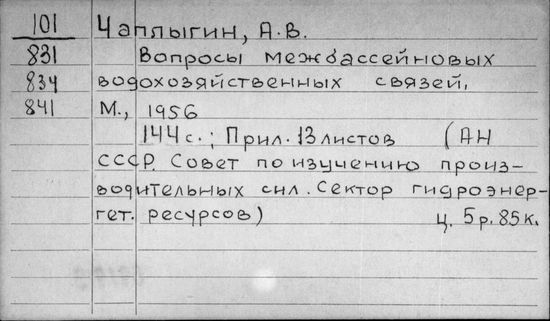 101 Чаплыгин, А.В.
831 Вопросы межбассейновых
834 водохозяйственных связей.
841 М., 1956
144 с.; Прил. 13 листов (АН
СССР. Совет по изучению произ-
водительных сил. Сектор гидроэнер-
гет. ресурсов) ц. 5 р. 85 к.